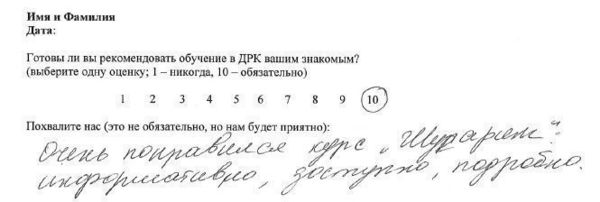 Имя и Фамилия
Дата:
Готовы ли вы рекомендовать обучение в ДРК вашим знакомым?
(выберите одну оценку; 1 – никогда, 10 – обязательно)
1 2 3 4 5 6 7 8 9 10
Похвалите нас (это не обязательно, но нам будет приятно):
Очень понравился курс
информативно, доступно, подробно.